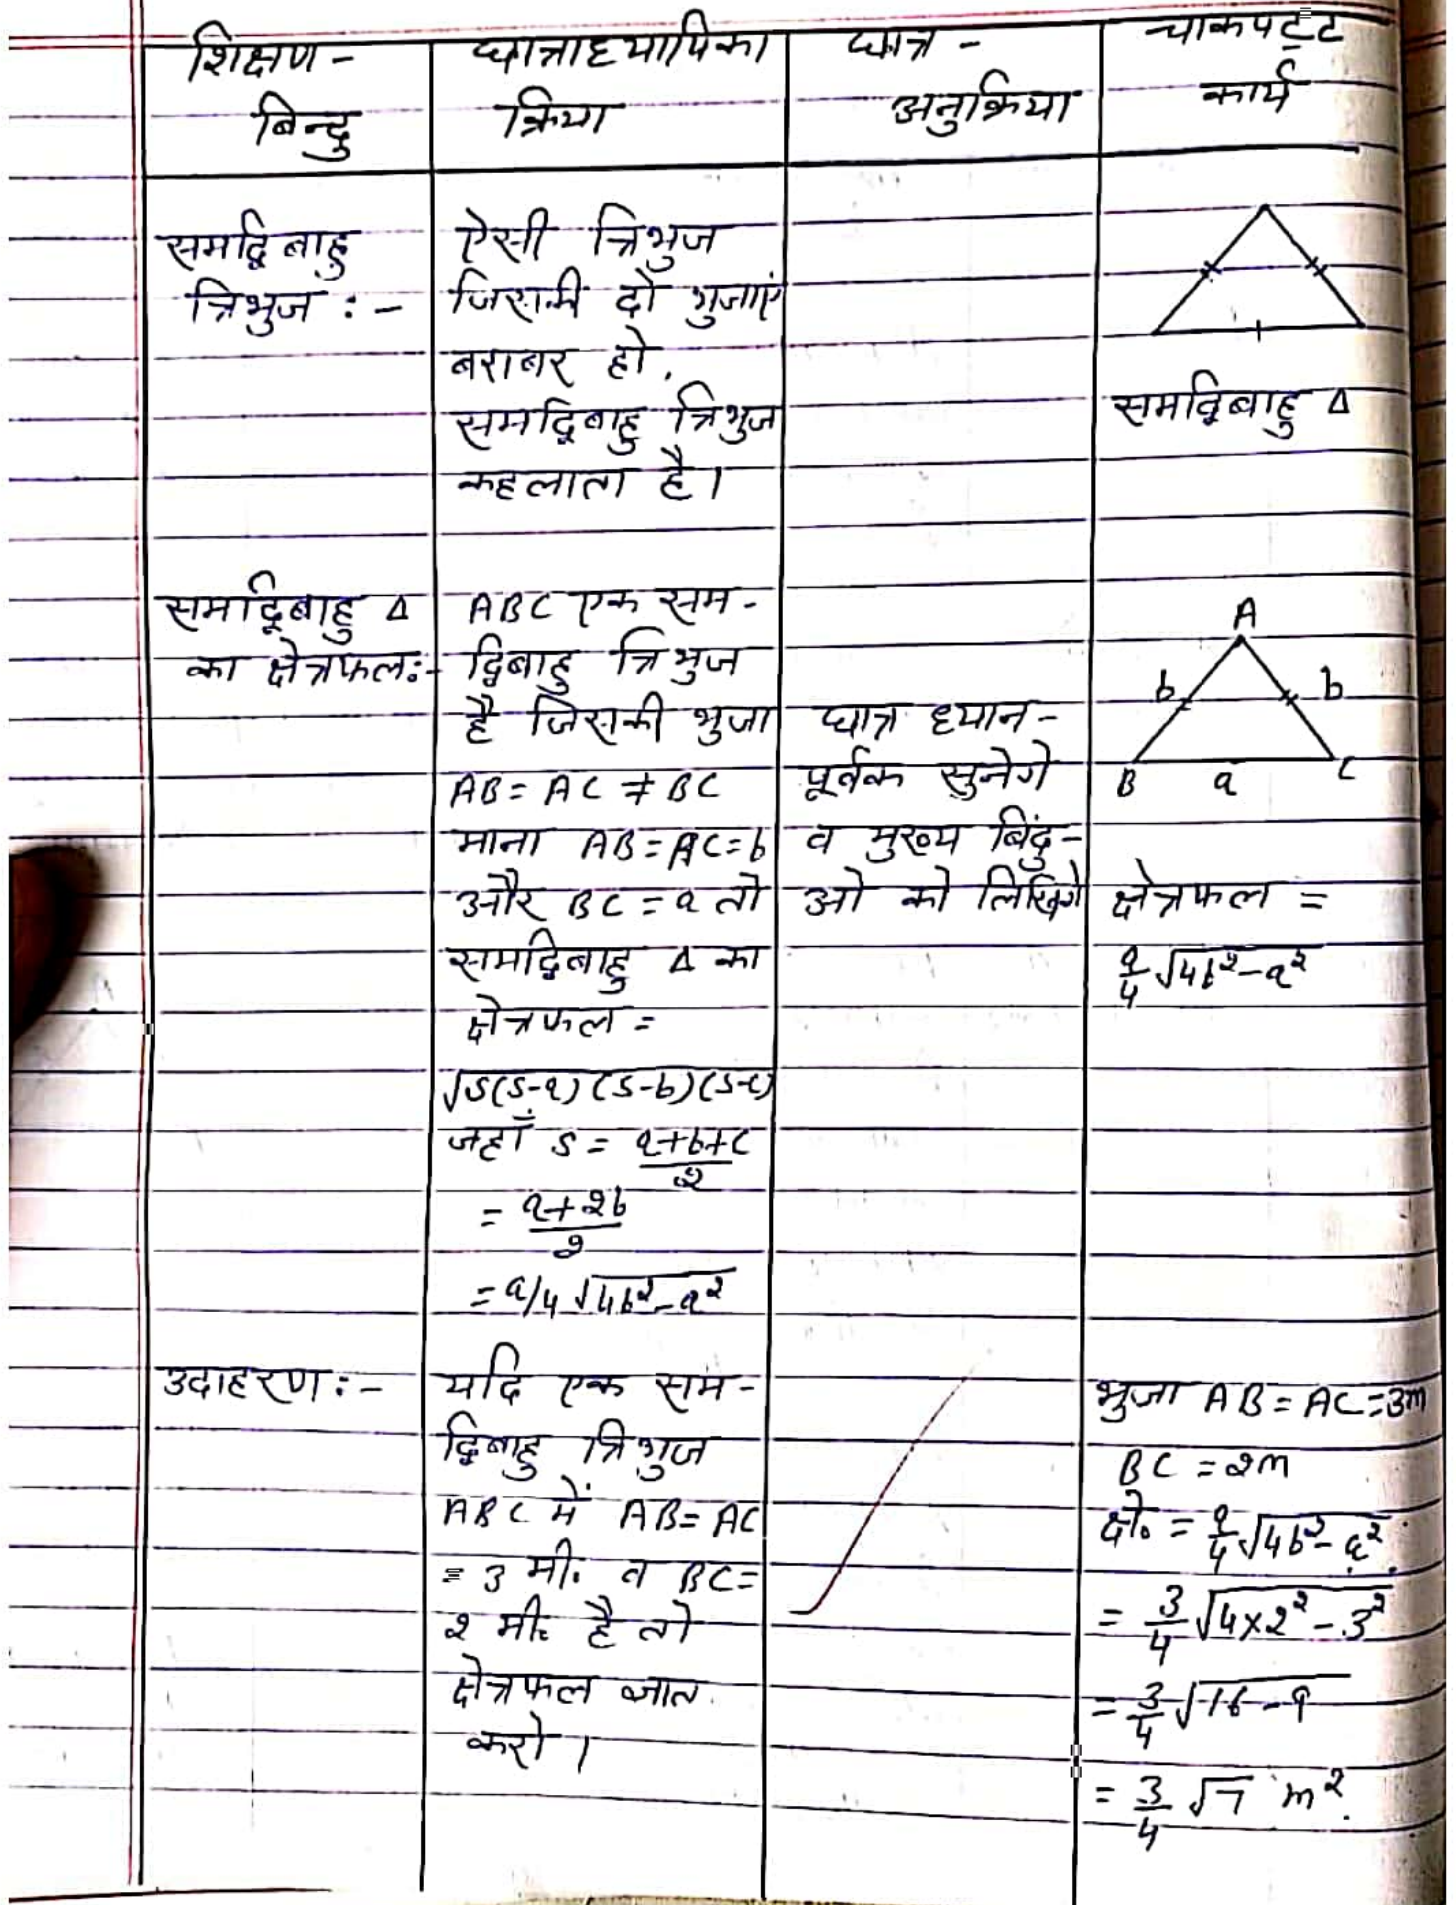 शिक्षण -
बिन्दु
छात्राध्यापिका
क्रिया
छात्र -
अनुक्रिया
चाकपट्ट
कार्य
समद्विबाहु
त्रिभुज :-
ऐसी त्रिभुज
जिसकी दो भुजाएं
बराबर हो,
समद्विबाहु त्रिभुज
कहलाता है।
समद्विबाहु Δ
समद्विबाहु Δ
का क्षेत्रफल:-
ABC एक सम-
द्विबाहु त्रिभुज
है जिसकी भुजा
AB = AC ≠ BC
माना AB = AC = b
और BC = a तो
समद्विबाहु Δ का
क्षेत्रफल =
√S(S-a)(S-b)(S-c)
जहाँ S = a+b+c/2
= a+2b/2
= a/4 √4b²-a²
छात्र ध्यान-
पूर्वक सुनेगे
व मुख्य बिंदु-
ओ को लिखेगे
A
b b
B a C
क्षेत्रफल =
a/4 √4b²-a²
उदाहरण :-
यदि एक सम-
द्विबाहु त्रिभुज
ABC में AB = AC
= 3 मी. व BC =
2 मी. है तो
क्षेत्रफल ज्ञात
करो ।
भुजा AB = AC = 3m
BC = 2m
क्षे. = a/4 √4b²-a²
= 3/4 √4×2²-3²
= 3/4 √16-9
= 3/4 √7 m².